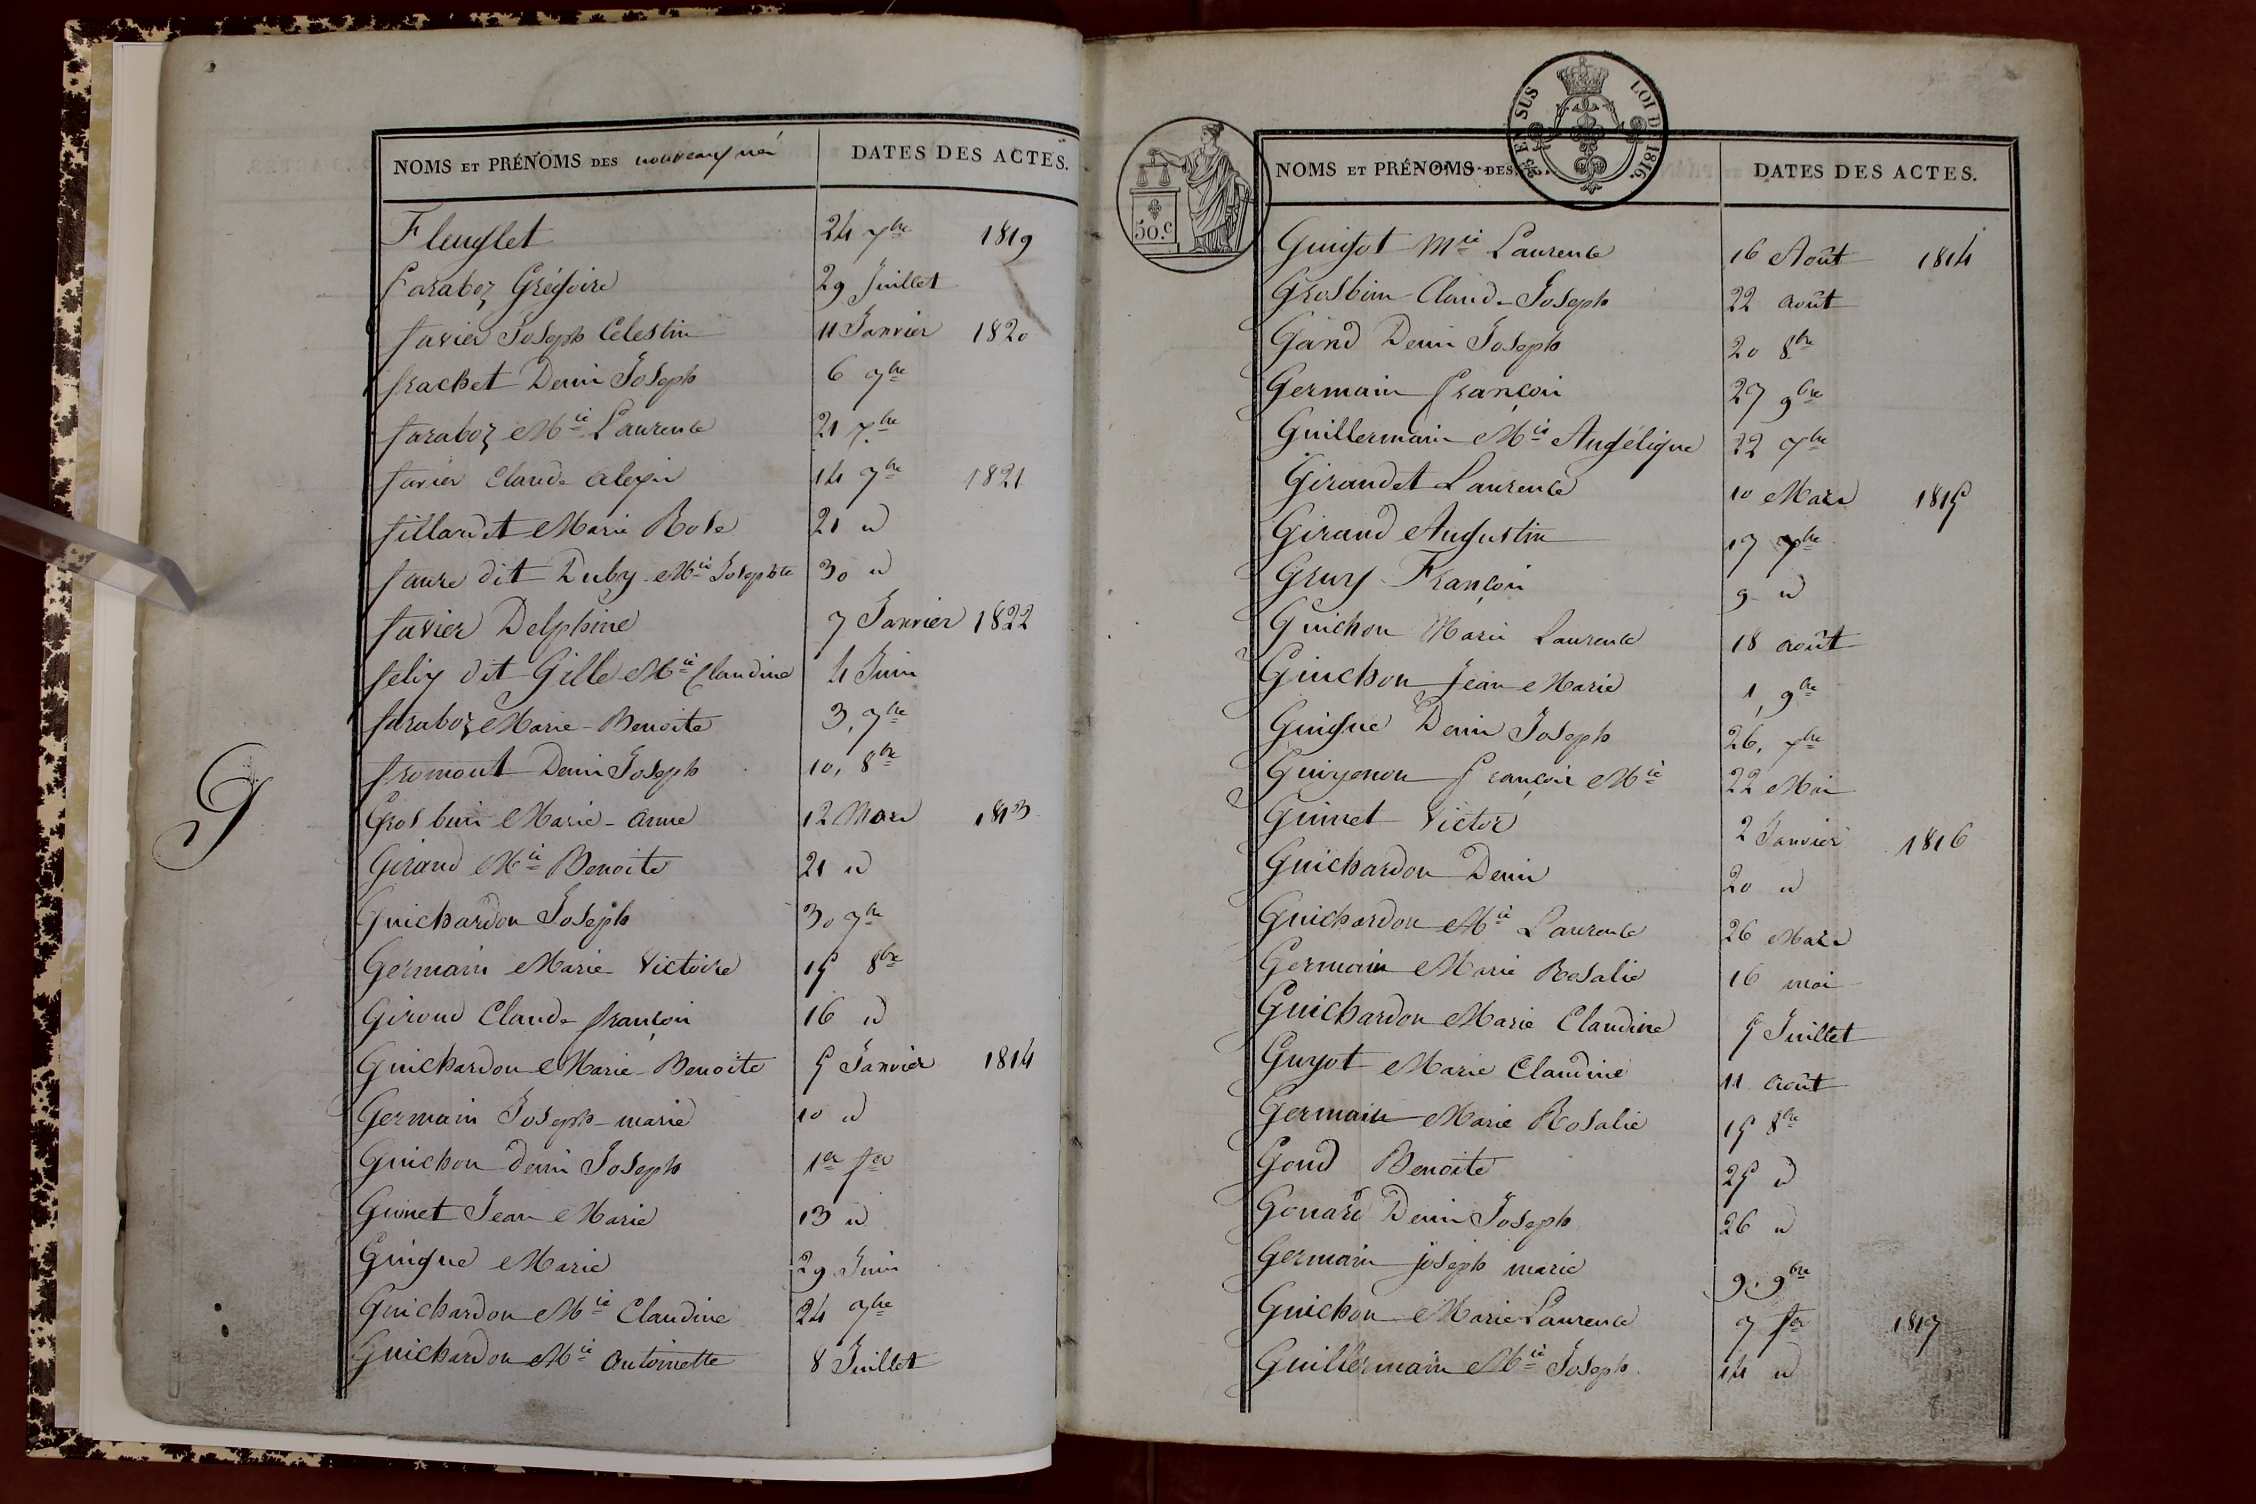 NOMS ET PRÉNOMS DES nouveaux nés DATES DES ACTES.
Fleuglet 24 7bre 1819
Faraboz Grégoire 29 Juillet
Favier Joseph Celestin 11 Janvier 1820
Frachet Denis Joseph 6 9bre
Faraboz Mie Laurence 21 Xbre
Favier Claude Alexis 14 9bre 1821
Fillardet Marie Rose 21 d
Faure dit Duby Mie Josephte 30 d
Favier Delphine 7 Janvier 1822
Felix dit Gille Mie Claudine 4 Juin
Faraboz Marie-Benoite 3, 7bre
Fromont Denis Joseph 10, 8bre
G
Grosbuis Marie-Anne 12 Mars 1813
Giraud Mie Benoite 21 d
Guichardon Joseph 30 7bre
Germain Marie Victoire 15 8bre
Giroud Claude françois 16 d
Guichardon Marie-Benoite 5 Janvier 1814
Germain Joseph-marie 10 d
Guichon denis Joseph 1er fer
Guinet Jean Marie 13 d
Guigue Marie 29 Juin
Guichardon Mie Claudine 24 7bre
Guichardon Mie Antoinette 8 Juillet
50.c
EN SUS LOI D 1816.
NOMS ET PRÉNOMS DES DATES DES ACTES.
Guigot Mie Laurence 16 Août 1814
Grosbuis Claude Joseph 22 août
Gand Denis Joseph 20 8bre
Germain françois 27 9bre
Guillermain Mie Angélique 22 7bre
Giraudet Laurence 10 Mars 1815
Giraud Augustin 17 Xbre
Gruy François 9 d
Guichon Marie Laurence 18 août
Guichon Jean Marie 1, 9bre
Guigue Denis Joseph 26, Xbre
Guiyenon françois Mie 22 Mai
Guinet Victor 2 Janvier 1816
Guichardon Denis 20 d
Guichardon Mie Laurence 26 Mars
Germain Marie Rosalie 16 mai
Guichardon Marie Claudine 5 Juillet
Guyot Marie Claudine 11 août
Germain Marie Rosalie 15 8bre
Goud Benoite 25 d
Gouard Denis Joseph 26 d
Germain joseph marie 9, 9bre
Guichon Marie Laurence 7 fer 1817
Guillermain Mie Joseph 14 d